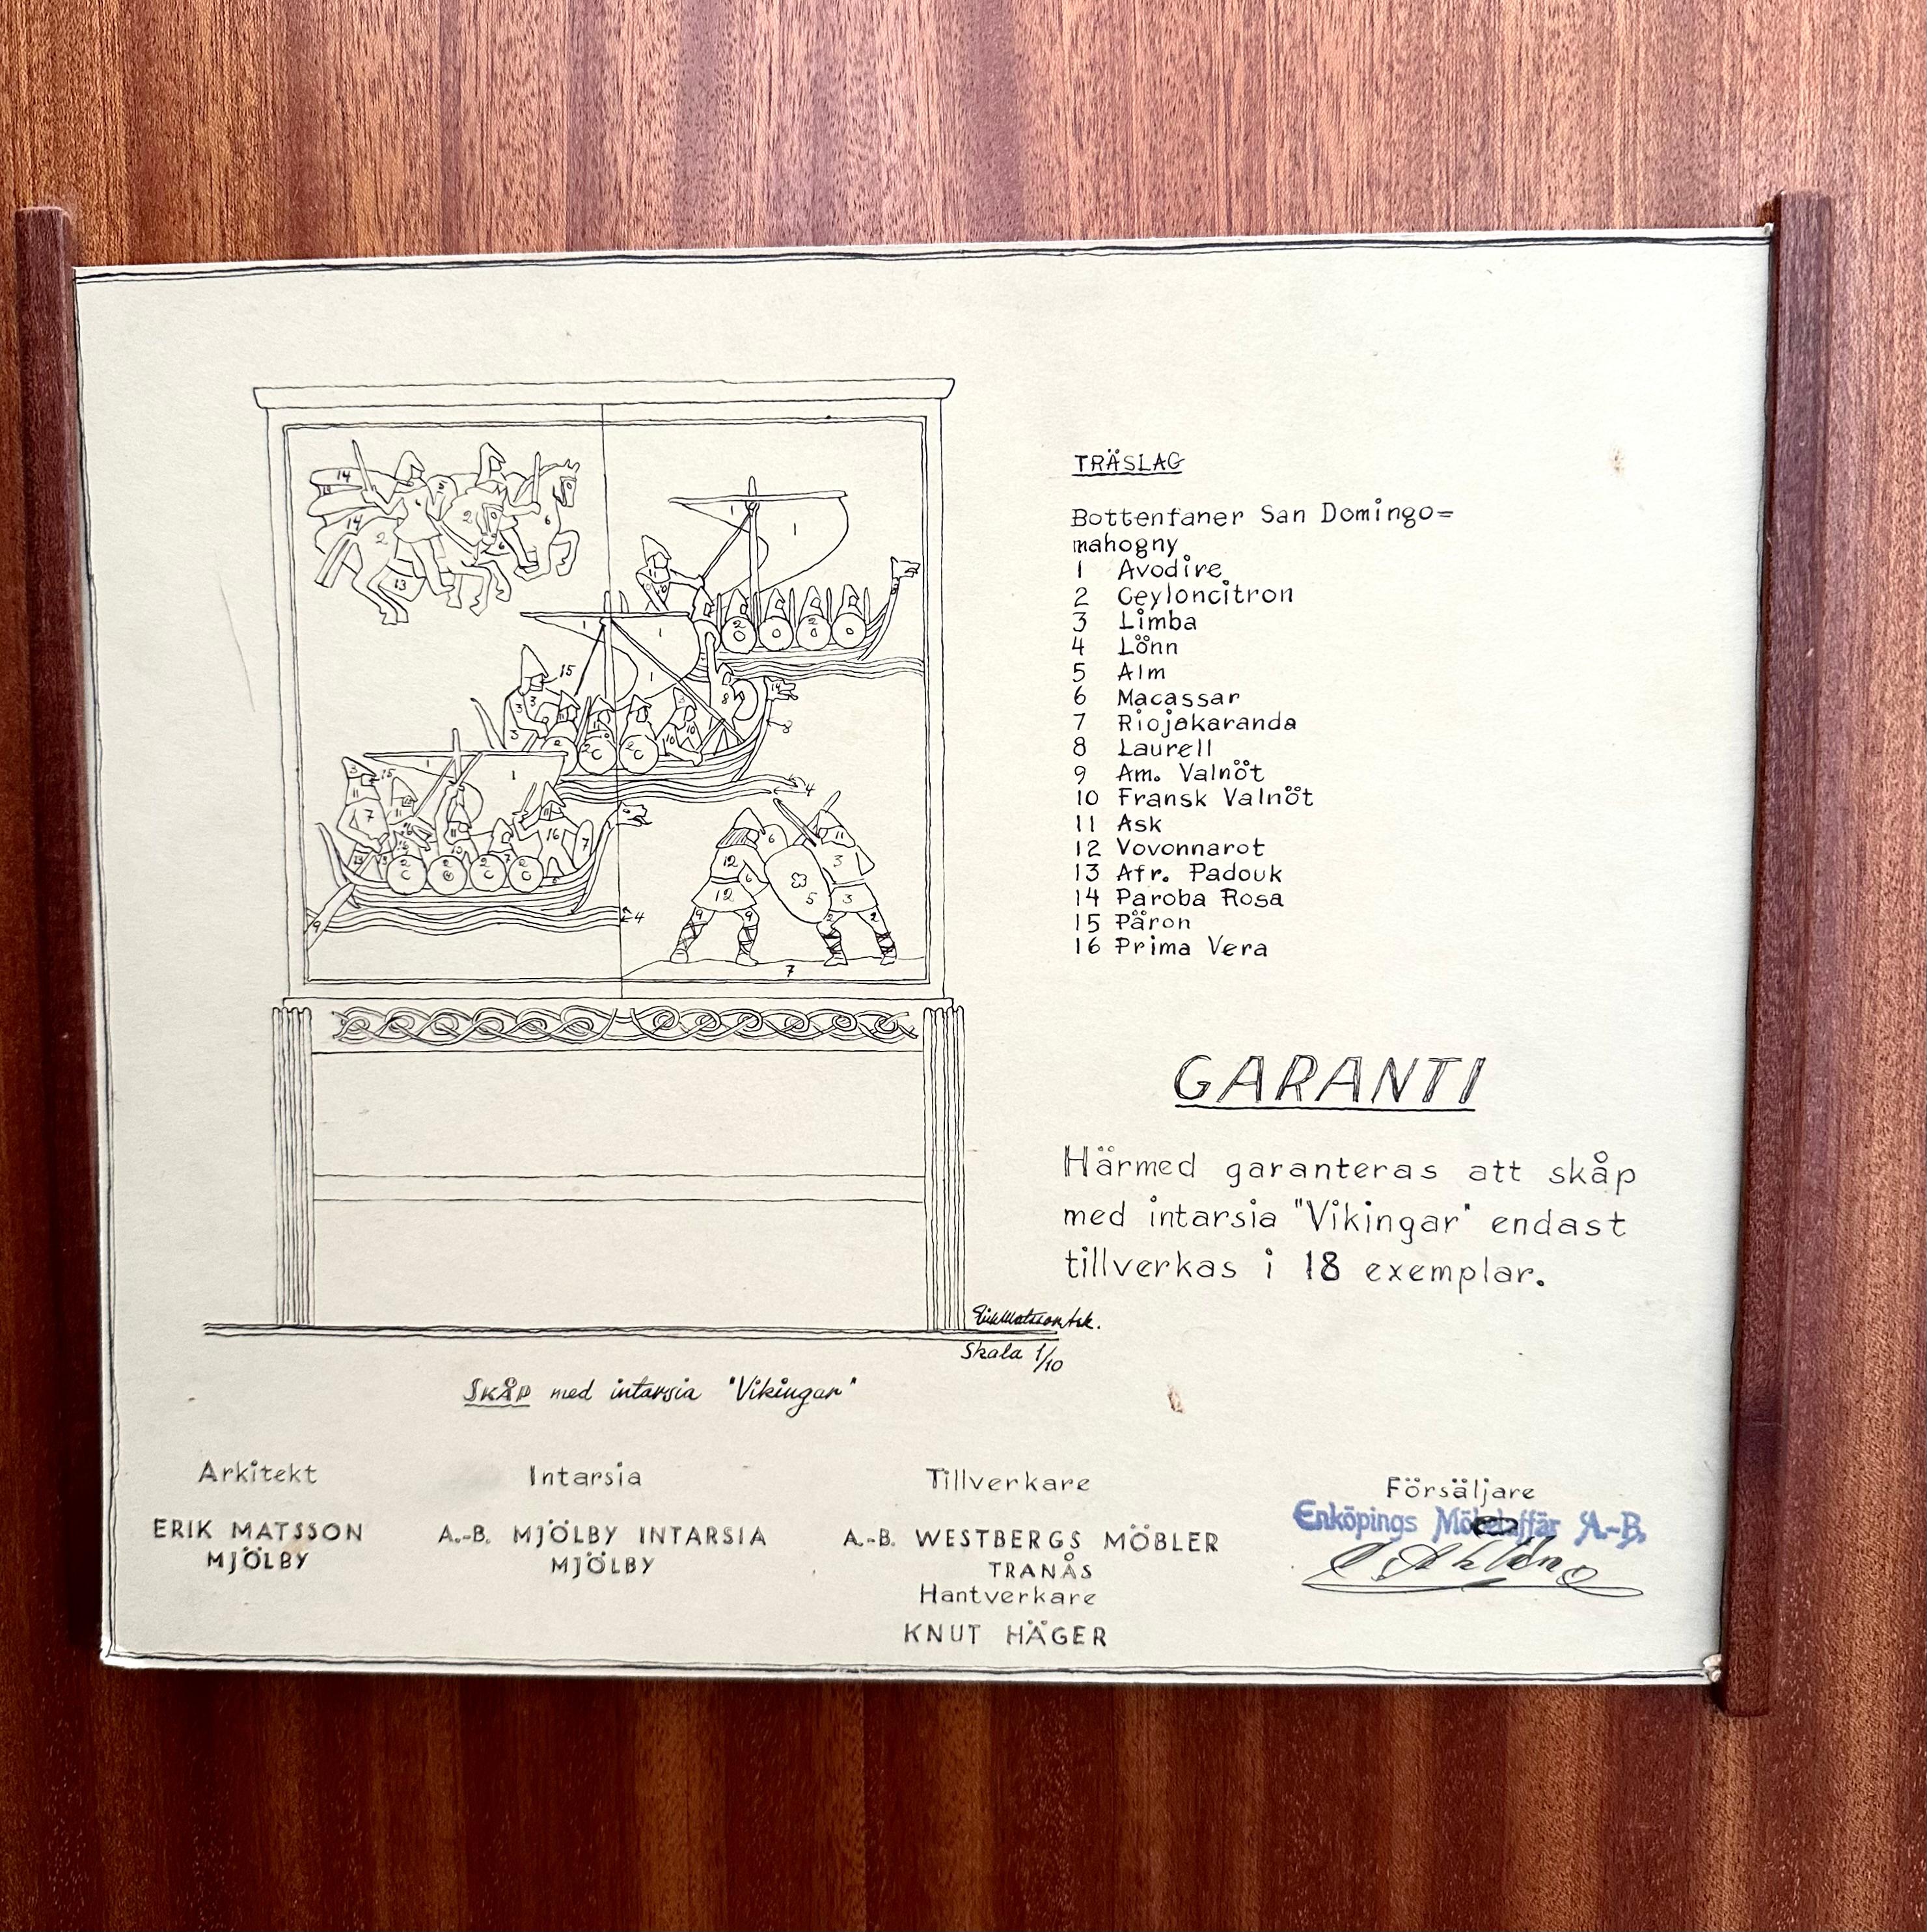 TRÄSLAG
Bottenfaner San Domingo=
mahogny
1 Avodire
2 Ceyloncitron
3 Limba
4 Lönn
5 Alm
6 Macassar
7 Riojakaranda
8 Laurell
9 Am. Valnöt
10 Fransk Valnöt
11 Ask
12 Vovonnarot
13 Afr. Padouk
14 Paroba Rosa
15 Päron
16 Prima Vera
GARANTI
Härmed garanteras att skåp
med intarsia "Vikingar" endast
tillverkas i 18 exemplar.
Erik Matsson Ark.
Skala 1/10
SKÅP med intarsia "Vikingar"
Arkitekt
ERIK MATSSON
MJÖLBY
Intarsia
A.-B. MJÖLBY INTARSIA
MJÖLBY
Tillverkare
A.-B. WESTBERGS MÖBLER
TRANÅS
Hantverkare
KNUT HÄGER
Försäljare
Enköpings Möbelaffär A.-B.